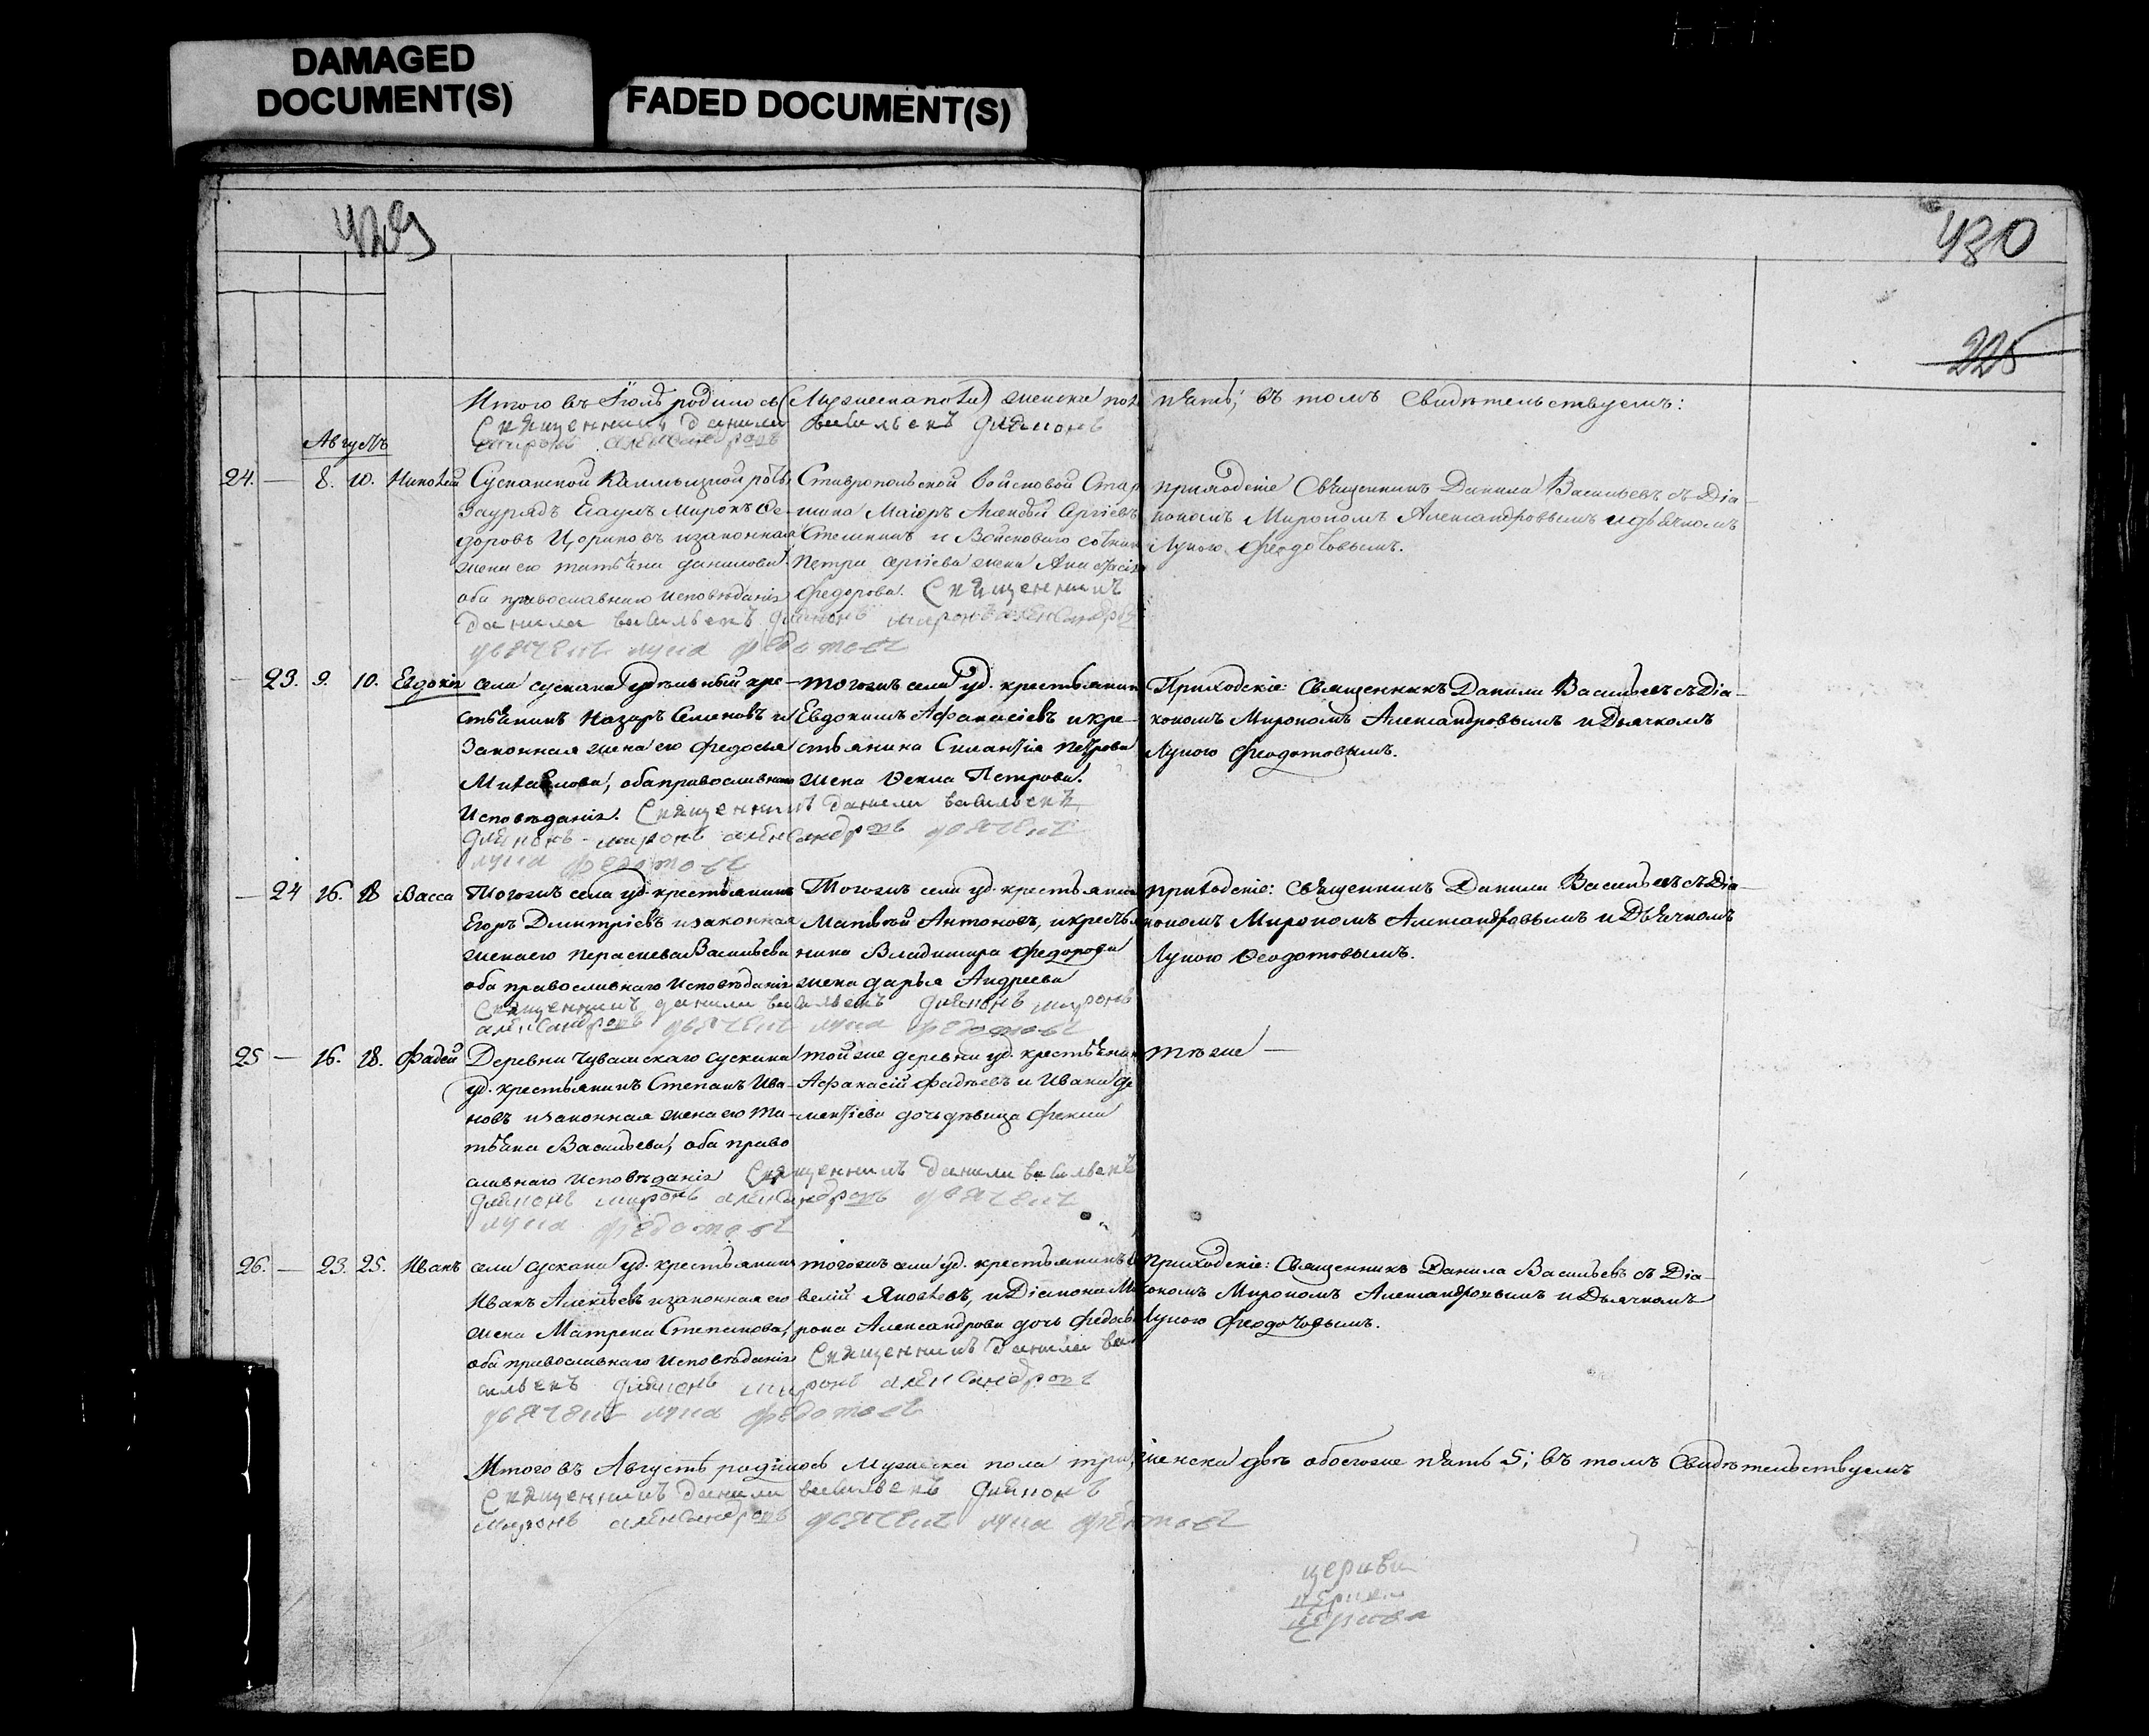 DAMAGED
DOCUMENT(S)
FADED DOCUMENT(S)
429
430
225
Итого въ Іюлѣ родилось (Мужеска пола) женска пола пять; въ томъ Свидѣтельствуемъ:
Священникъ данила васильевъ диаконъ
миронъ александровъ
Августъ
24. — 8. 10. Николай
Сусканской Калмыцкой роты
Заурядъ Есаулъ Миронъ Ѳе-
доровъ Цориковъ и законная
жена его татьяна данилова
оба православнаго исповѣданія
Ставропольской войсковой Стар
шина Маіоръ Алексѣй Сергіевъ
и Войсковаго сотника
Петра сергіева жена Анастасія
федорова. Священникъ
данила васильевъ диаконъ миронъ александровъ
дьячекъ лука федотовъ
приходскіе Священникъ Данила Васильевъ съ Діа-
кономъ Мирономъ Александровымъ и дьячкомъ
Лукою Феодотовымъ.
— 23. 9. 10. Евдокія
села сускана удѣльный кре-
стьянинъ Назаръ Семеновъ и
Законная жена его Федосья
Михайлова, оба православнаго
Исповѣданія. Священникъ данила васильевъ
диаконъ миронъ александровъ дьячекъ
лука федотовъ
тогожъ села уд. крестьянинъ
Евдокимъ Афанасіевъ и кре-
стьянина Силантія петрова
жена Ѳекла Петрова.
Приходскіе: Священникъ Данила Васильевъ съ Діа-
кономъ Мирономъ Александровымъ и Дьячкомъ
Лукою Феодотовымъ.
— 24 16. 18 Васса
Тогожъ села уд. крестьянинъ
Егоръ Дмитріевъ и законная
жена его Параскева Васильева
оба православнаго Исповѣданія
Священникъ данила васильевъ диаконъ миронъ
александровъ дьячекъ лука федотовъ
Тогожъ села уд. крестьянинъ
Матвѣй Антоновъ, и крестья
нина Владимира Федорова
жена дарья Андреева
приходскіе: Священникъ Данила Васильевъ съ Діа-
кономъ Мирономъ Александровымъ и Дьячкомъ
Лукою Ѳеодотовымъ.
25 — 16. 18. Фадей
Деревни Чувашскаго Сускана
уд. крестьянинъ Степанъ Ива-
новъ и законная жена его Та-
тьяна Васильева, оба право
славнаго Исповѣданія Священникъ данила васильевъ
диаконъ миронъ александровъ дьячекъ
лука федотовъ
той же деревни уд. крестьянинъ
Афанасій Фадѣевъ и Ивана де
ментіева дочь дѣвица Фекла
тѣ же —
26. — 23. 25. Иванъ
села Сускана уд. крестьянинъ
Иванъ Алексѣевъ и законная его
жена Матрена Степанова,
оба православнаго Исповѣданія Священникъ данила ва
сильевъ диаконъ миронъ александровъ
дьячекъ лука федотовъ
тогожъ села уд. крестьянинъ Са
велій Яковлевъ, и Діакона Ми
рона Александрова дочь федосья
Приходскіе: Священникъ Данила Васильевъ съ Діа-
кономъ Мирономъ Александровымъ и Дьячкомъ
Лукою Феодотовымъ.
Итого въ Августѣ родилось Мужеска пола три, женска двѣ обоегоже пять 5; въ томъ Свидѣтельствуемъ
Священникъ данила васильевъ диаконъ
миронъ александровъ дьячекъ лука федотовъ
церкви
церкви
церкви